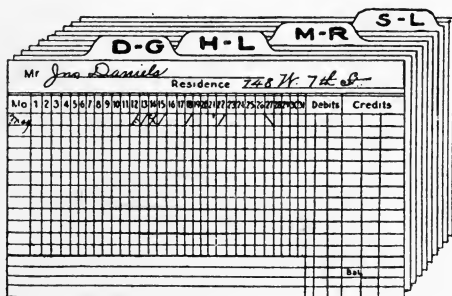 S-L
M-R
H-L
D-G
Mr Jno Daniels
Residence 748 W. 7th St
Mo 1 2 3 4 5 6 7 8 9 10 11 12 13 14 15 16 17 18 19 20 21 22 23 24 25 26 27 28 29 30 31 Debits Credits
Bal